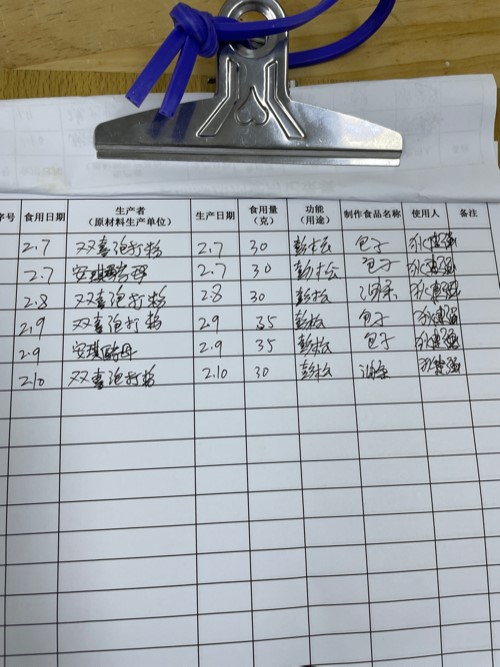 序号 食用日期 生产者（原材料生产单位） 生产日期 食用量（克） 功能（用途） 制作食品名称 使用人 备注
2.7 双喜泡打粉 2.7 30 彭松 包子
2.7 安琪酵母 2.7 30 彭松 包子
2.8 双喜泡打粉 2.8 30 彭松 油条
2.9 双喜泡打粉 2.9 35 彭松 包子
2.9 安琪酵母 2.9 35 彭松 包子
2.10 双喜泡打粉 2.10 30 彭松 油条